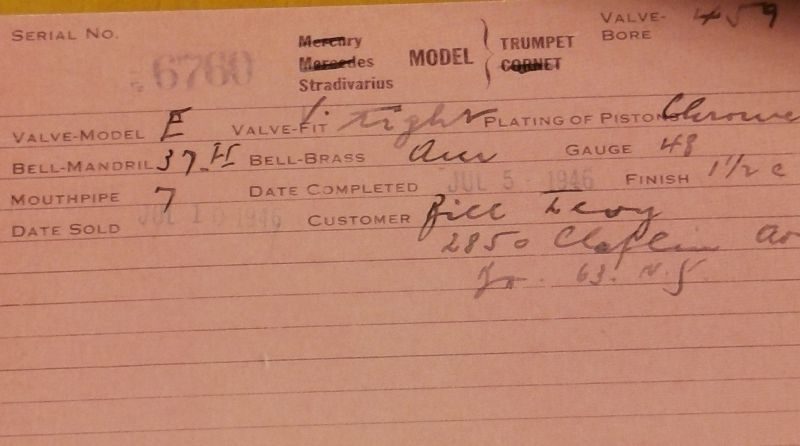 SERIAL NO. 6760 Mercury Mercedes Stradivarius MODEL TRUMPET CORNET VALVE-BORE 459
VALVE-MODEL E VALVE-FIT tight PLATING OF PISTONS Chrome
BELL-MANDRIL 37 H BELL-BRASS GAUGE 48
MOUTHPIPE 7 DATE COMPLETED JUL 5 - 1946 FINISH 1 1/2 c
DATE SOLD JUL 1 1946 CUSTOMER Bill Levy
2850 Claflin av
63. N.Y.